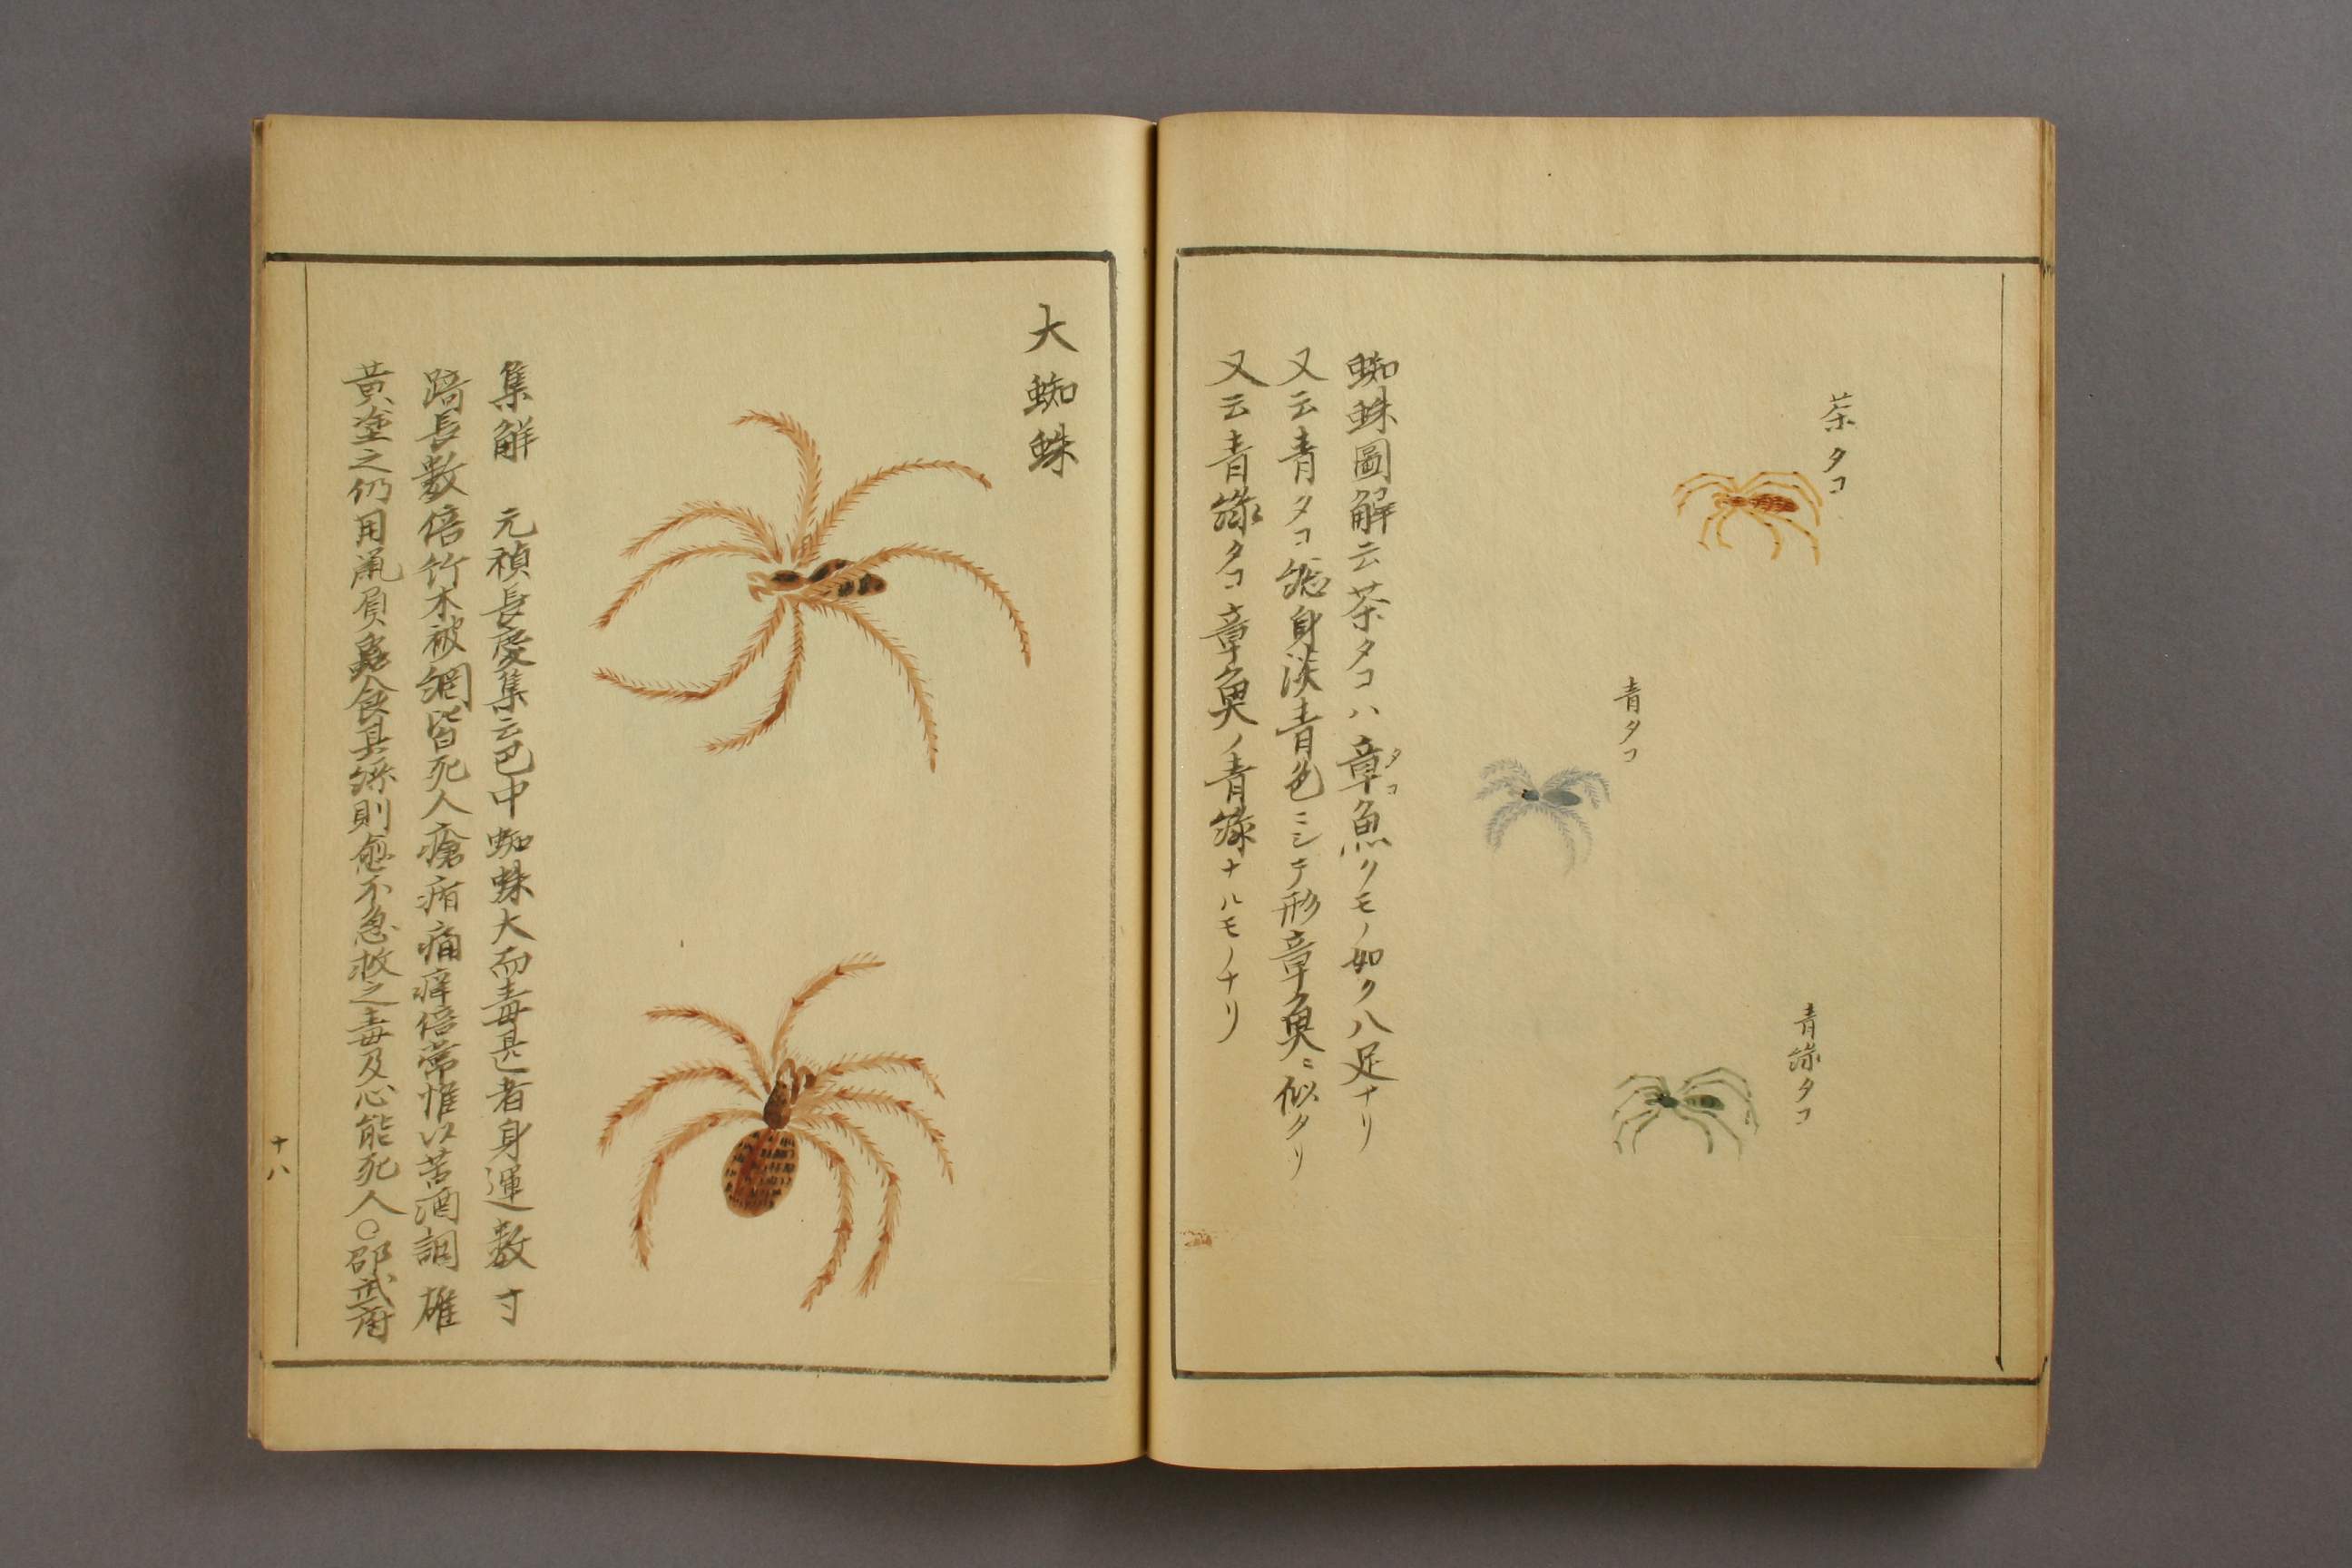 茶タコ
青タコ
青緑タコ
蜘蛛圖解云茶タコハ章魚クモノ如ク八足ナリ
タコ
又云青タコ総身淡青色ニシテ形章魚ニ似タリ
又云青緑タコ章魚ノ青緑ナルモノナリ
大蜘蛛
集解 元稹長慶集云巴中蜘蛛大而毒甚者身運数寸
踦長數倍竹木被網皆死人瘡痏痛痒倍常惟以苦酒調雄
黄塗之仍用鼠負蟲食其絲則愈不急救之毒及心能死人○邵武府
十八